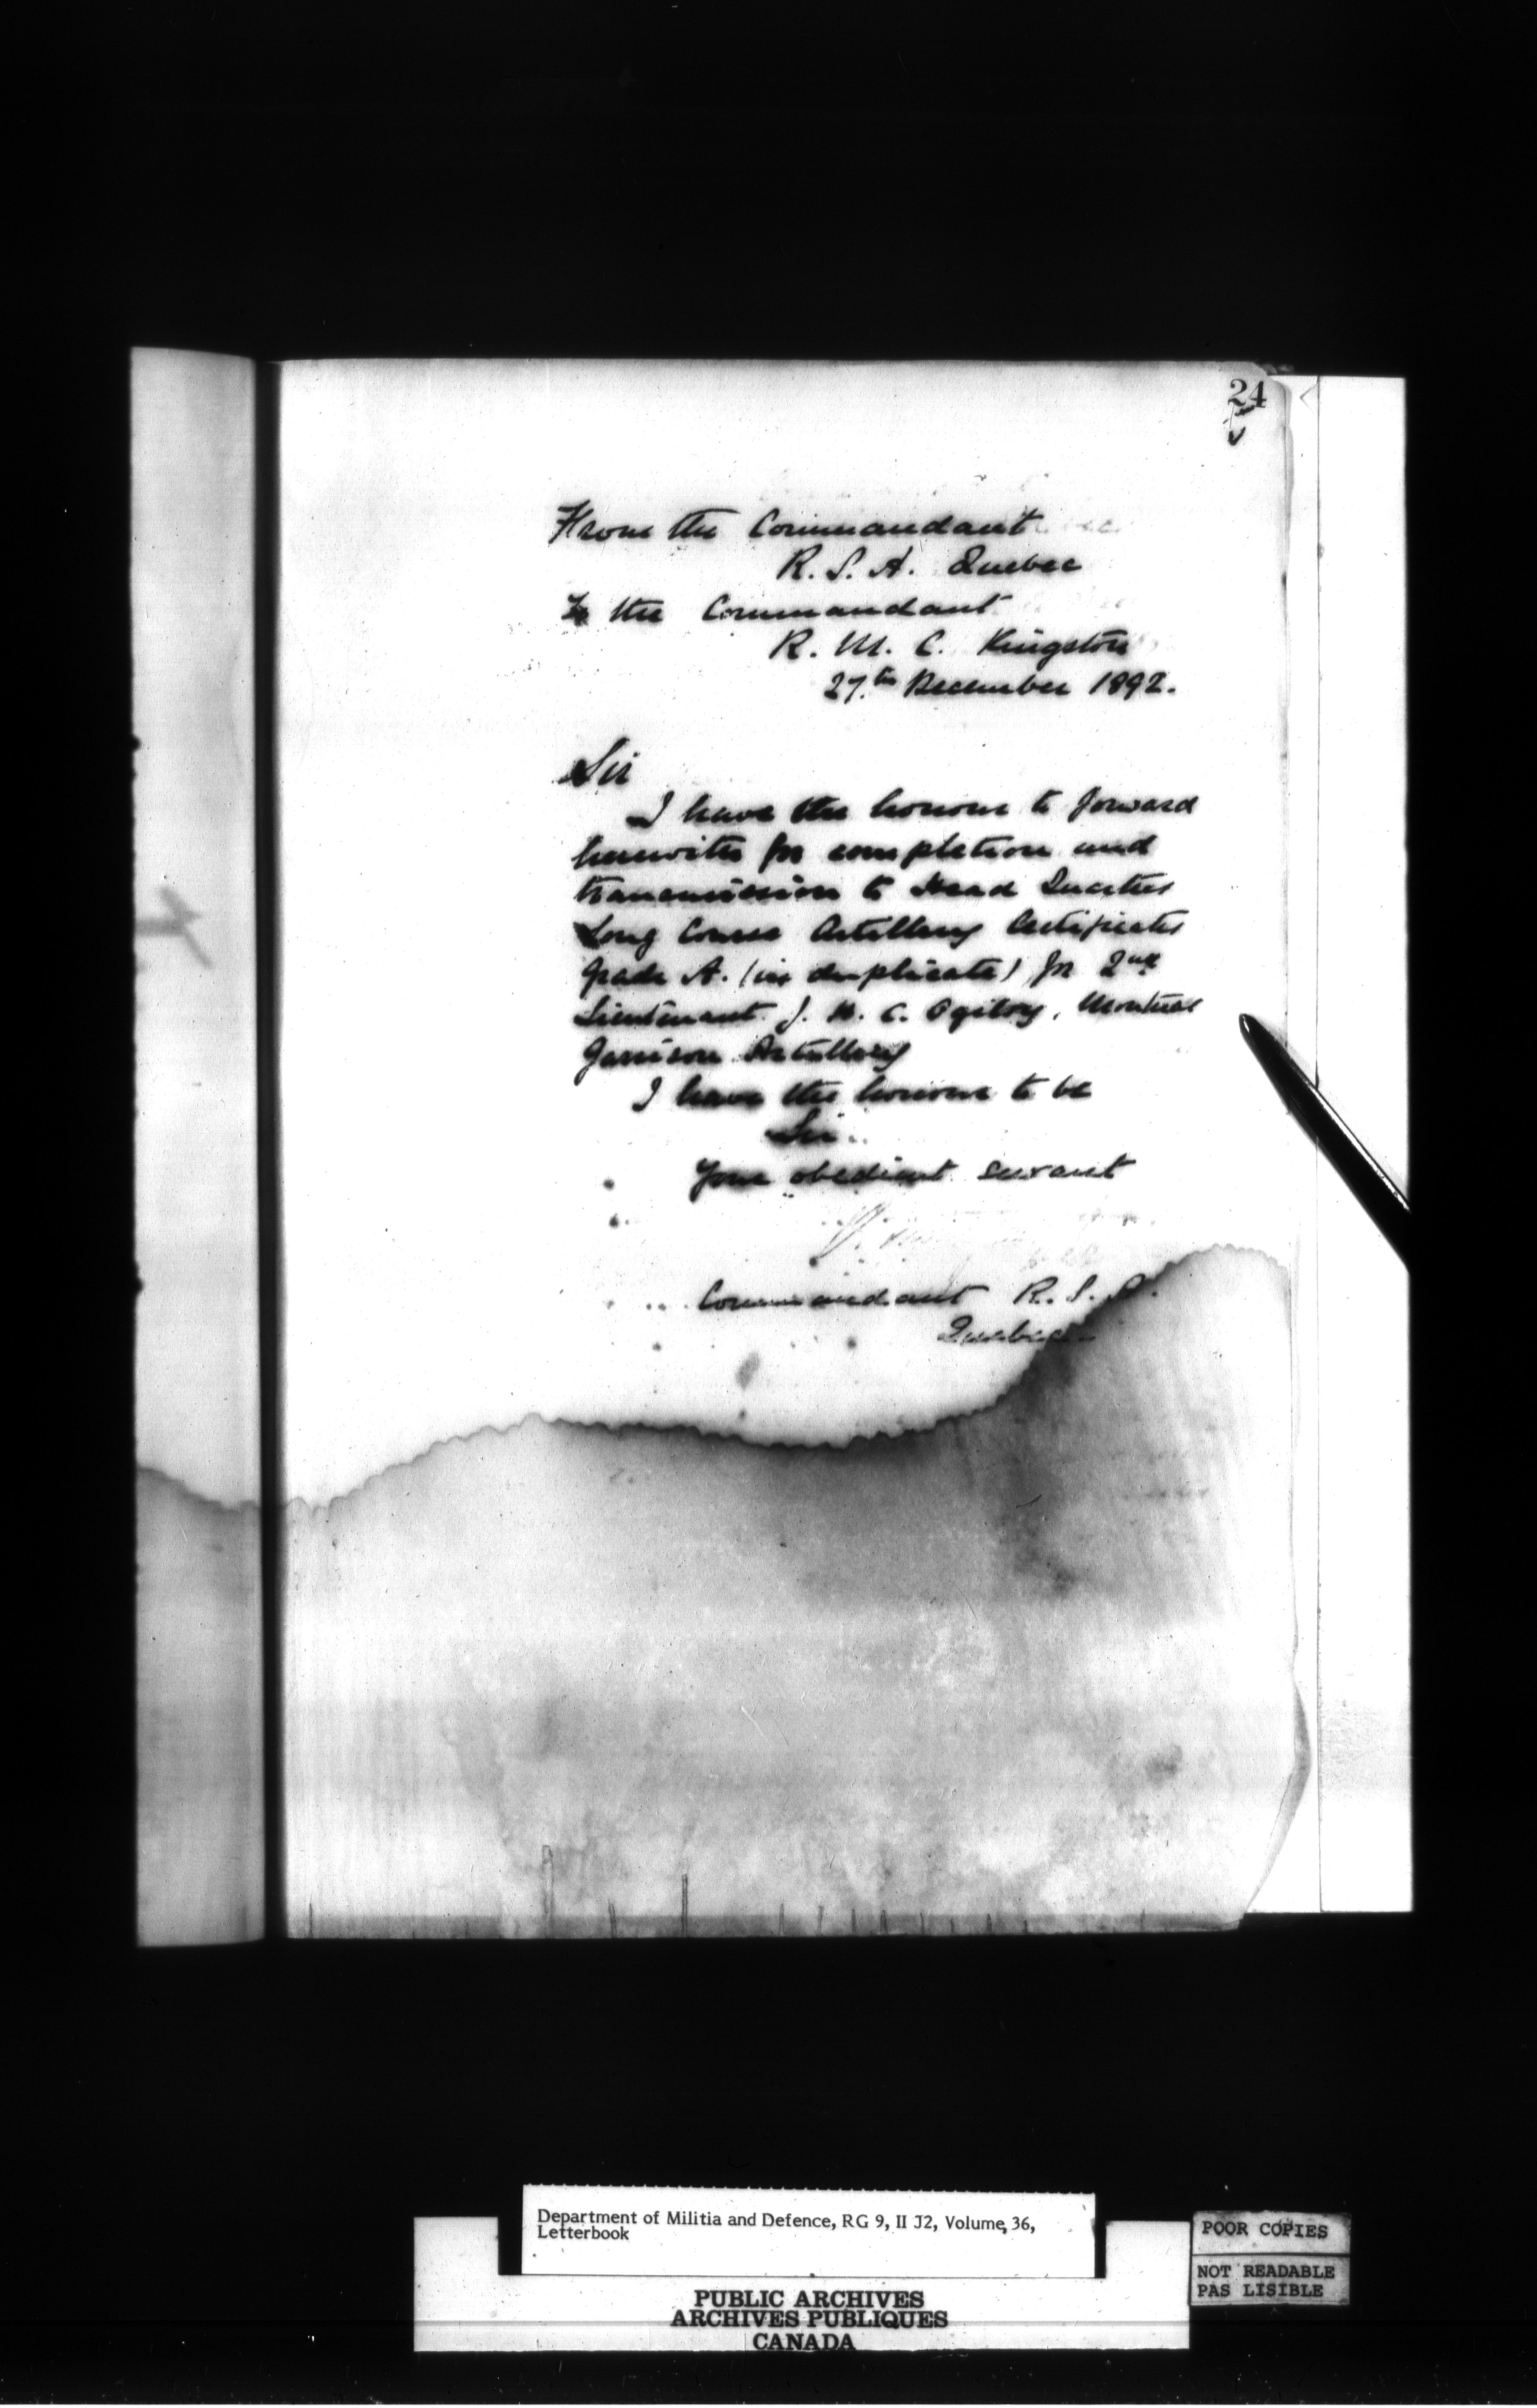 24
From the Commandant
R. S. A. Quebec
To the Commandant
R. M. C. Kingston
27.th December 1892.
Sir
I have the honour to forward
herewith for completion and
transmission to Head Quarters
Long Course Artillery Certificates
Grade A. (in duplicate) for 2nd
Lieutenant J. H. C. Ogilvy, Montreal
Garrison Artillery
I have the honour to be
Sir
Your obedient servant
Commandant R. S. A.
Quebec
Department of Militia and Defence, RG 9, II J2, Volume 36,
Letterbook
PUBLIC ARCHIVES
ARCHIVES PUBLIQUES
CANADA
POOR COPIES
NOT READABLE
PAS LISIBLE